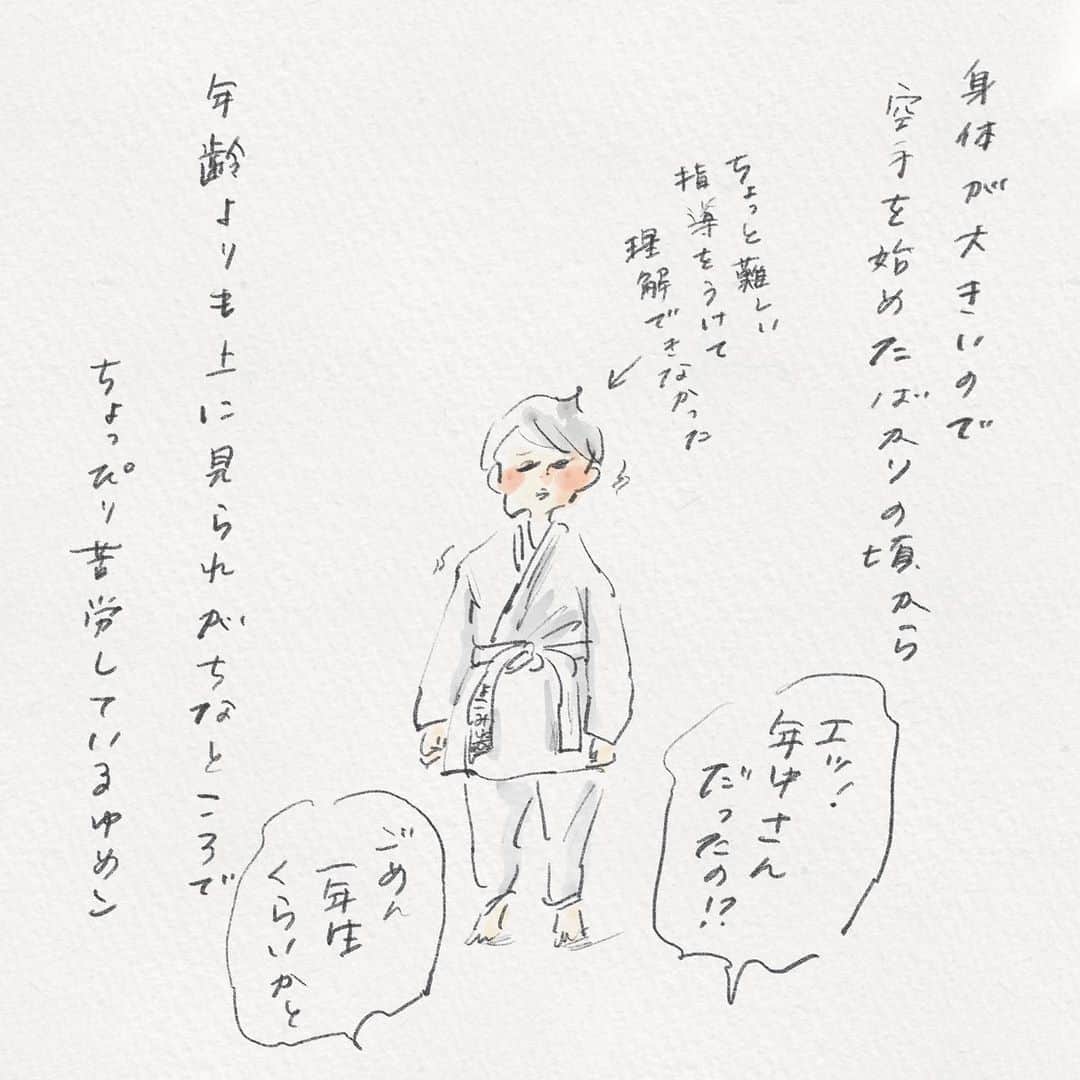 身体が大きいので
空手を始めたばかりの頃から
ちょっと難しい
指導をうけて
理解できなかった
エッ!
年中さん
だったの!?
ごめん
一年生
くらいかと
年齢よりも上に見られがちなところで
ちょっぴり苦労しているゆめこ